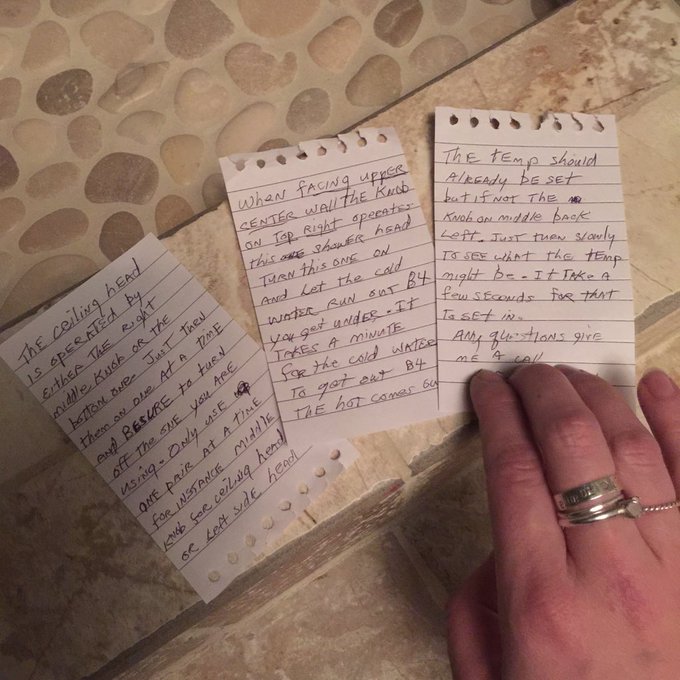 The ceiling head
is operated by
either the right
middle knob or the
bottom one. Just turn
them on one at a time
and BESURE to turn
off the one you are
using. Only use
one pair at a time
for instance middle
knob for ceiling head
or left side head
When facing upper
center wall the knob
on top right operates
this shower head
Turn this one on
and let the cold
water run out B4
you get under. It
takes a minute
for the cold water
to get out B4
the hot comes
The temp should
already be set
but if not the
knob on middle back
left. Just turn slowly
to see what the temp
might be. It take a
few seconds for that
to set in.
Any questions give
me a call